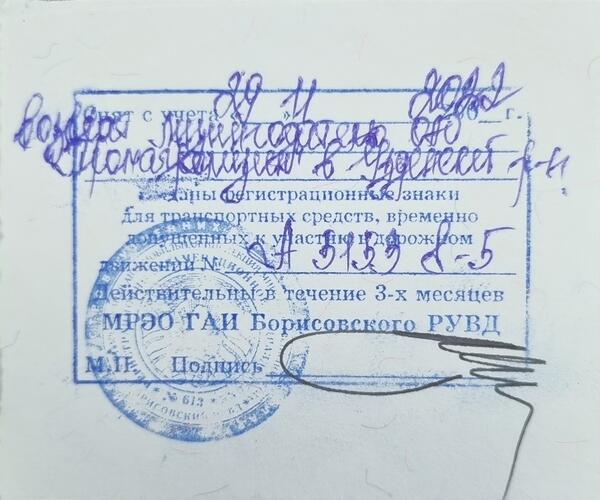 Снят с учета "29" 11 2022 г.
возврат лизингодателю ОАО
"Промагролизинг" в Узденский р-н.
Выданы регистрационные знаки
для транспортных средств, временно
допущенных к участию в дорожном
движении № А 3133 8-5
Действительны в течение 3-х месяцев
МРЭО ГАИ Борисовского РУВД
М.П. Подпись
№ 613